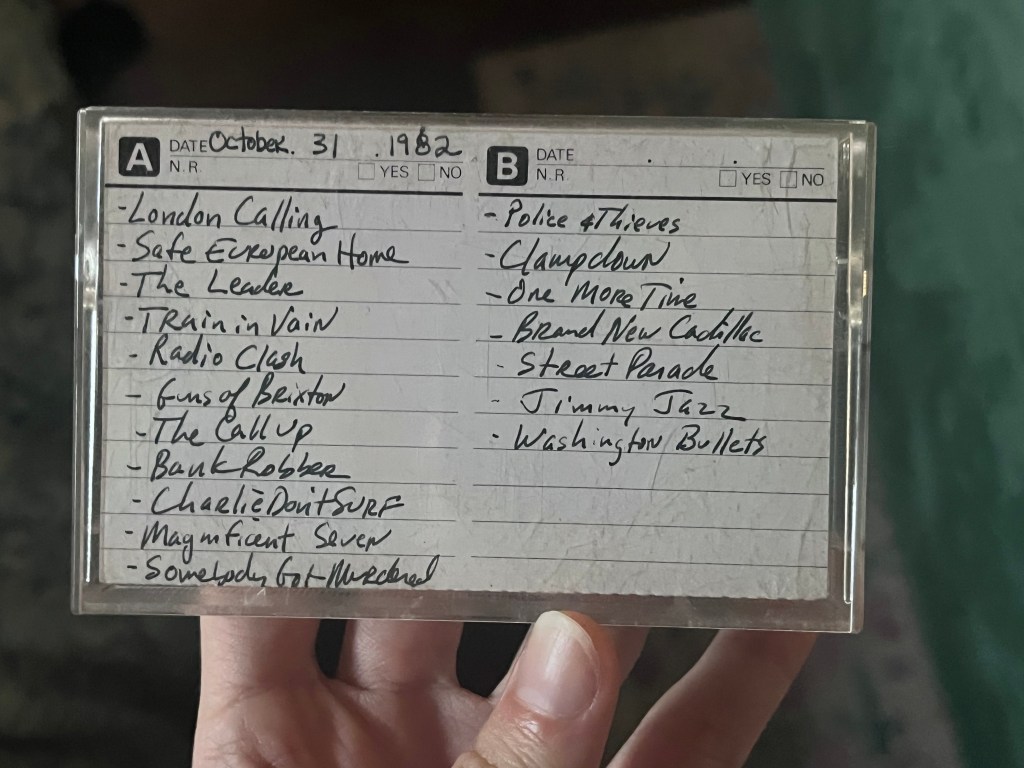 A DATE October. 31 . 1982
N.R. YES NO
- London Calling
- Safe European Home
- The Leader
- Train in Vain
- Radio Clash
- Guns of Brixton
- The Call up
- Bank Robber
- Charlie Don't Surf
- Magnificent Seven
- Somebody Got Murdered
B DATE . .
N.R. YES NO
- Police & Thieves
- Clampdown
- One More Time
- Brand New Cadillac
- Street Parade
- Jimmy Jazz
- Washington Bullets